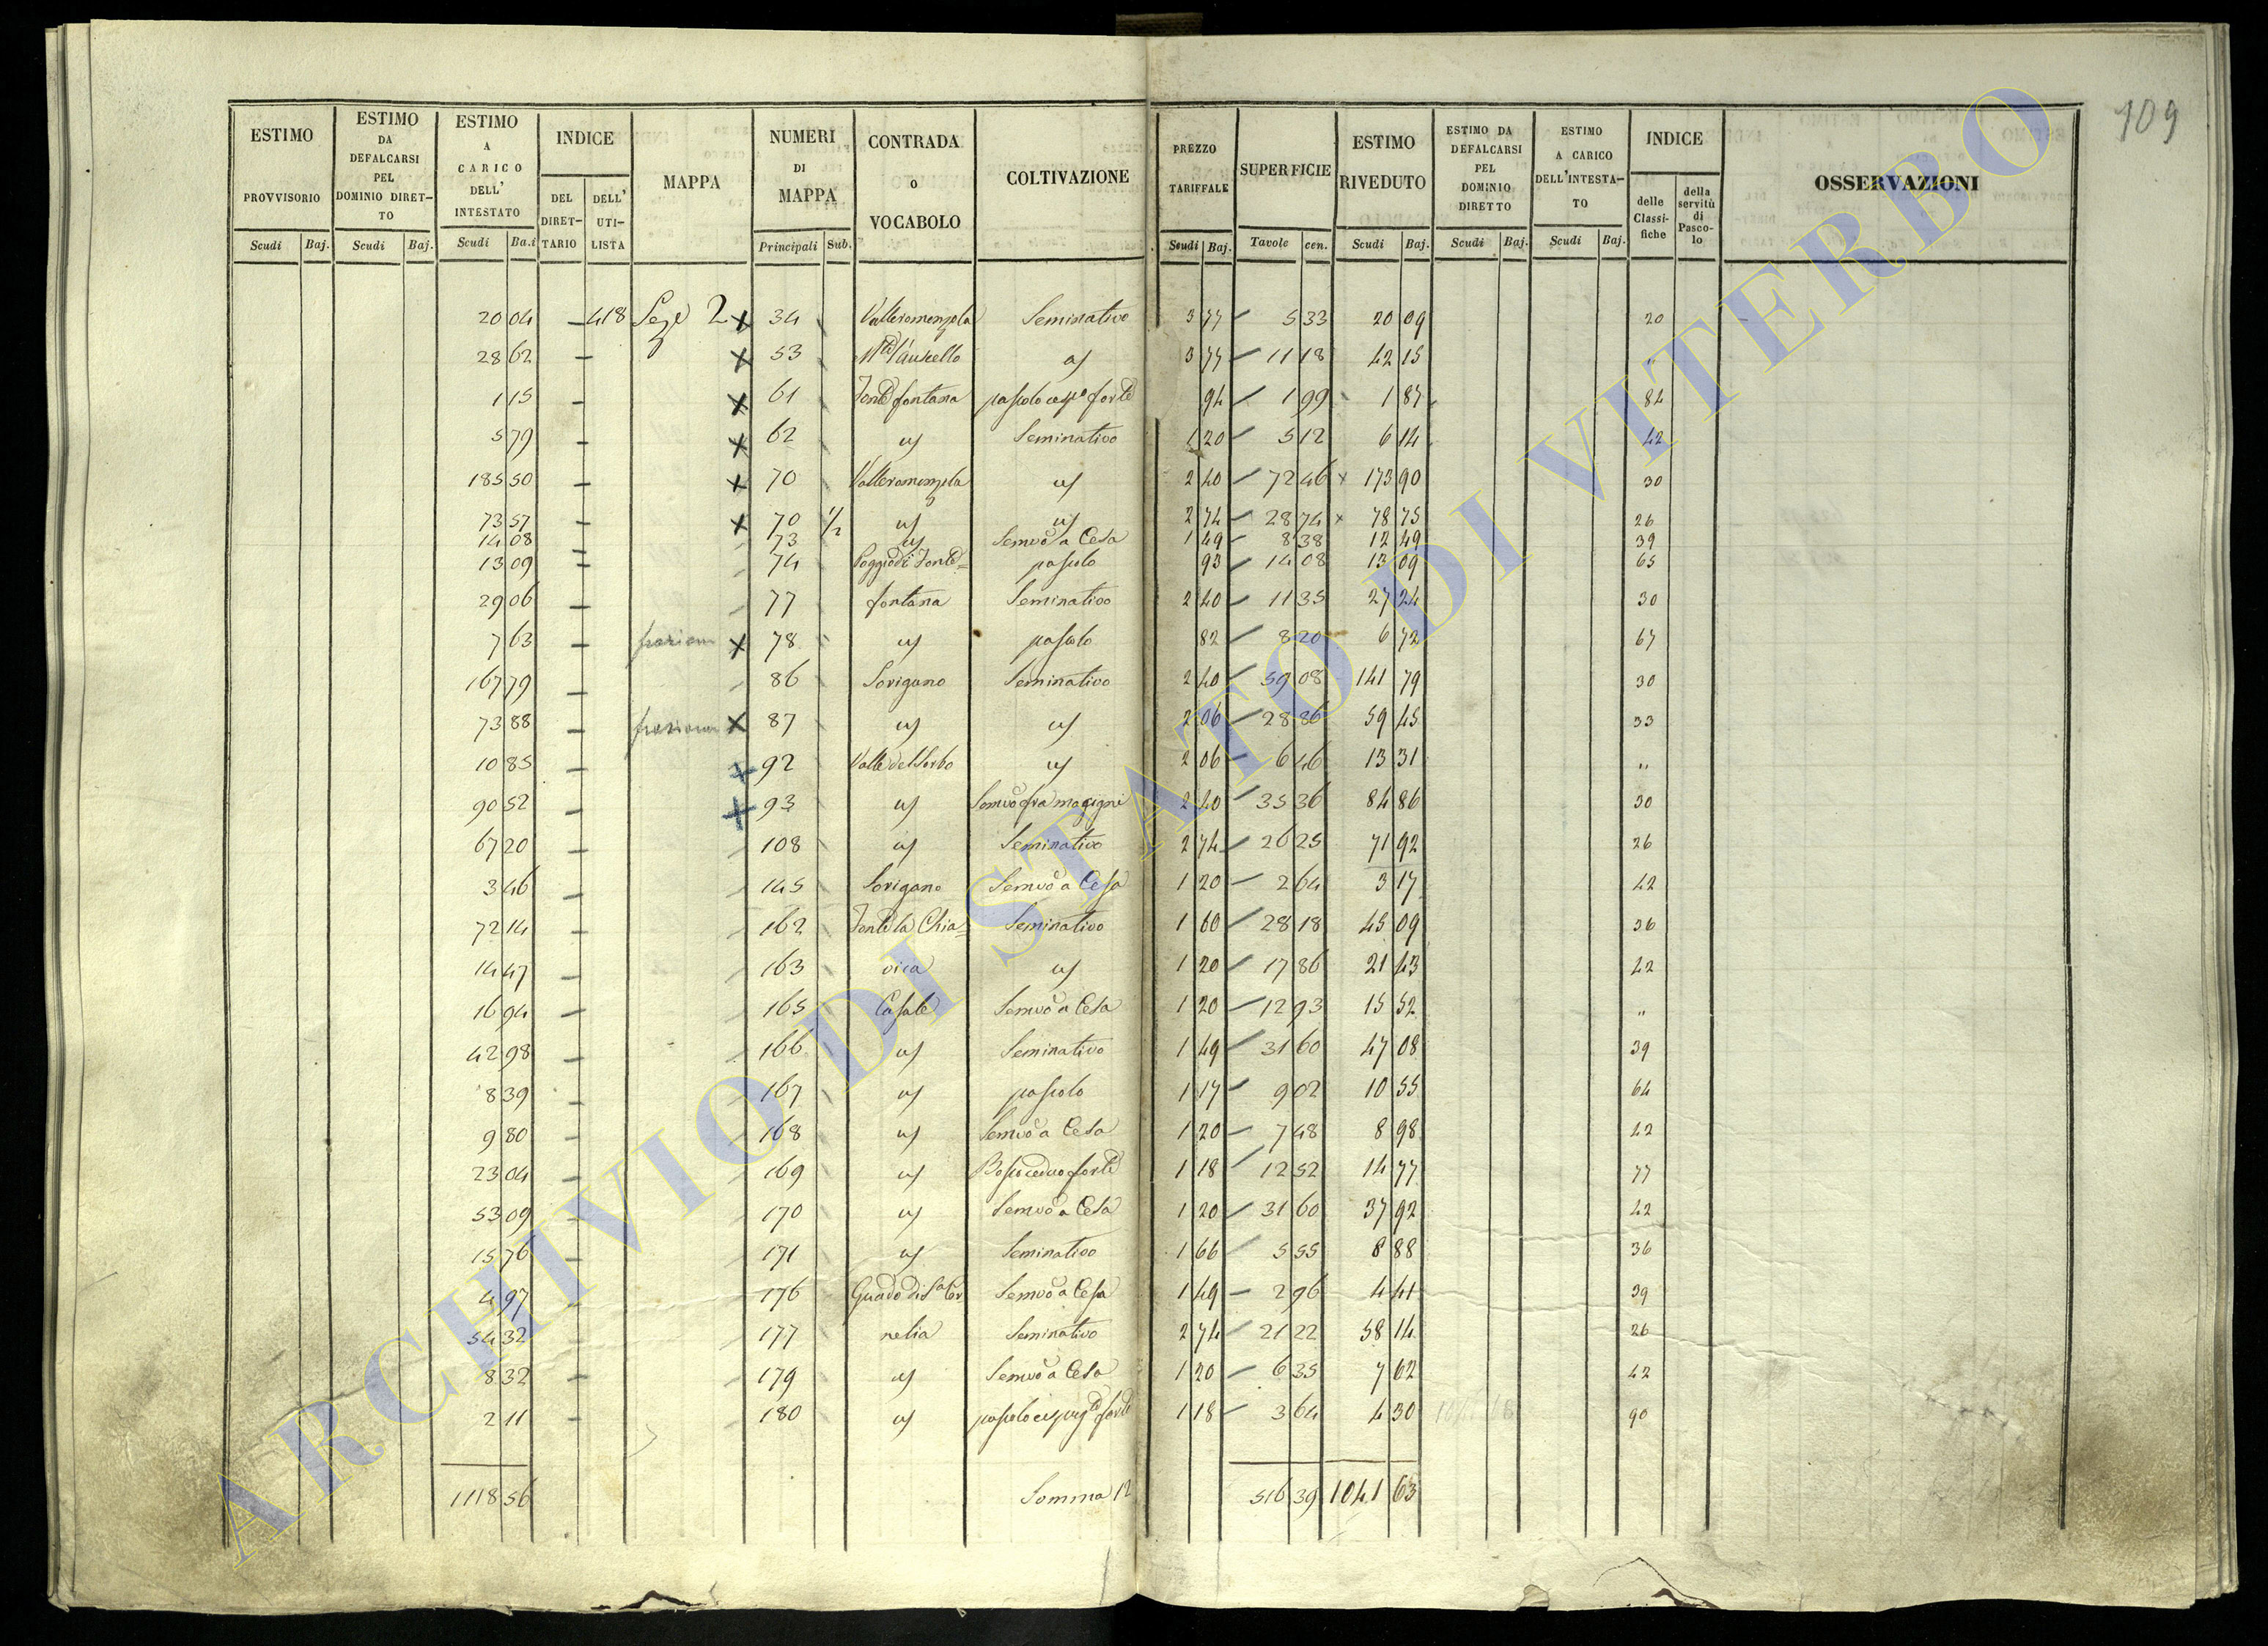 109
ESTIMO PROVVISORIO Scudi Baj.
ESTIMO DA DEFALCARSI PEL DOMINIO DIRET-TO Scudi Baj.
ESTIMO A CARICO DELL' INTESTATO Scudi Ba.i
INDICE DEL DIRET-TARIO DELL' UTI-LISTA
MAPPA
NUMERI DI MAPPA Principali Sub.
CONTRADA o VOCABOLO
COLTIVAZIONE
PREZZO TARIFFALE Scudi Baj.
SUPERFICIE Tavole cen.
ESTIMO RIVEDUTO Scudi Baj.
ESTIMO DA DEFALCARSI PEL DOMINIO DIRETTO Scudi Baj.
ESTIMO A CARICO DELL'INTESTA-TO Scudi Baj.
INDICE delle Classi-fiche della servitù di Pasco-lo
OSSERVAZIONI
20 04 – 418 Seze 2 x 34 Valleromenzola Seminativo 3 77 5 33 20 09 20
28 62 – x 53 uf 3 77 11 18 42 15 "
1 15 – x 61 fontana pascolo forte 94 1 99 1 87 84
5 79 – x 62 uf Seminativo 1 20 5 12 6 14 42
185 50 – x 70 Valleromenzola uf 2 40 72 46 x 173 90 30
73 57 – x 70 1/2 uf uf 2 74 28 74 x 78 75 26
14 08 – 73 uf Semvo a Cesa 1 49 8 38 12 49 39
13 09 – 74 Poggio di Fonte= pascolo 93 14 08 13 09 65
29 06 – 77 fontana Seminativo 2 40 11 35 27 24 30
7 63 – frazione x 78 uf pascolo 82 8 20 6 72 67
167 79 – 86 Sorigano Seminativo 2 40 59 08 141 79 30
73 88 – frazione x 87 uf uf 2 06 28 86 59 45 33
10 85 – x 92 Valle del Sorbo uf 2 06 6 46 13 31 "
90 52 – x 93 uf Semvo fra macigni 2 40 35 36 84 86 30
67 20 – 108 uf Seminativo 2 74 26 25 71 92 26
3 46 – 145 Sorigano Semvo a Cesa 1 20 2 64 3 17 42
72 14 – 162 Fonte la Chia= Seminativo 1 60 28 18 45 09 36
14 47 – 163 vica uf 1 20 17 86 21 43 42
16 94 – 165 Casale Semvo a Cesa 1 20 12 93 15 52 "
42 98 – 166 uf Seminativo 1 49 31 60 47 08 39
8 39 – 167 uf pascolo 1 17 9 02 10 55 64
9 80 – 168 uf Semvo a Cesa 1 20 7 48 8 98 42
23 04 – 169 uf Bosco ceduo forte 1 18 12 52 14 77 77
53 09 – 170 uf Semvo a Cesa 1 20 31 60 37 92 42
15 76 – 171 uf Seminativo 1 66 5 55 8 88 36
4 97 – 176 Guado di Sta Cor Semvo a Cesa 1 49 2 96 4 41 39
54 32 – 177 nelia Seminativo 2 74 21 22 58 14 26
8 32 – 179 uf Semvo a Cesa 1 20 6 35 7 62 42
2 11 – 180 uf pascolo cespugto forte 1 18 3 64 4 30 90
1118 56 Somma 12 516 39 1041 63
ARCHIVIO DI STATO DI VITERBO